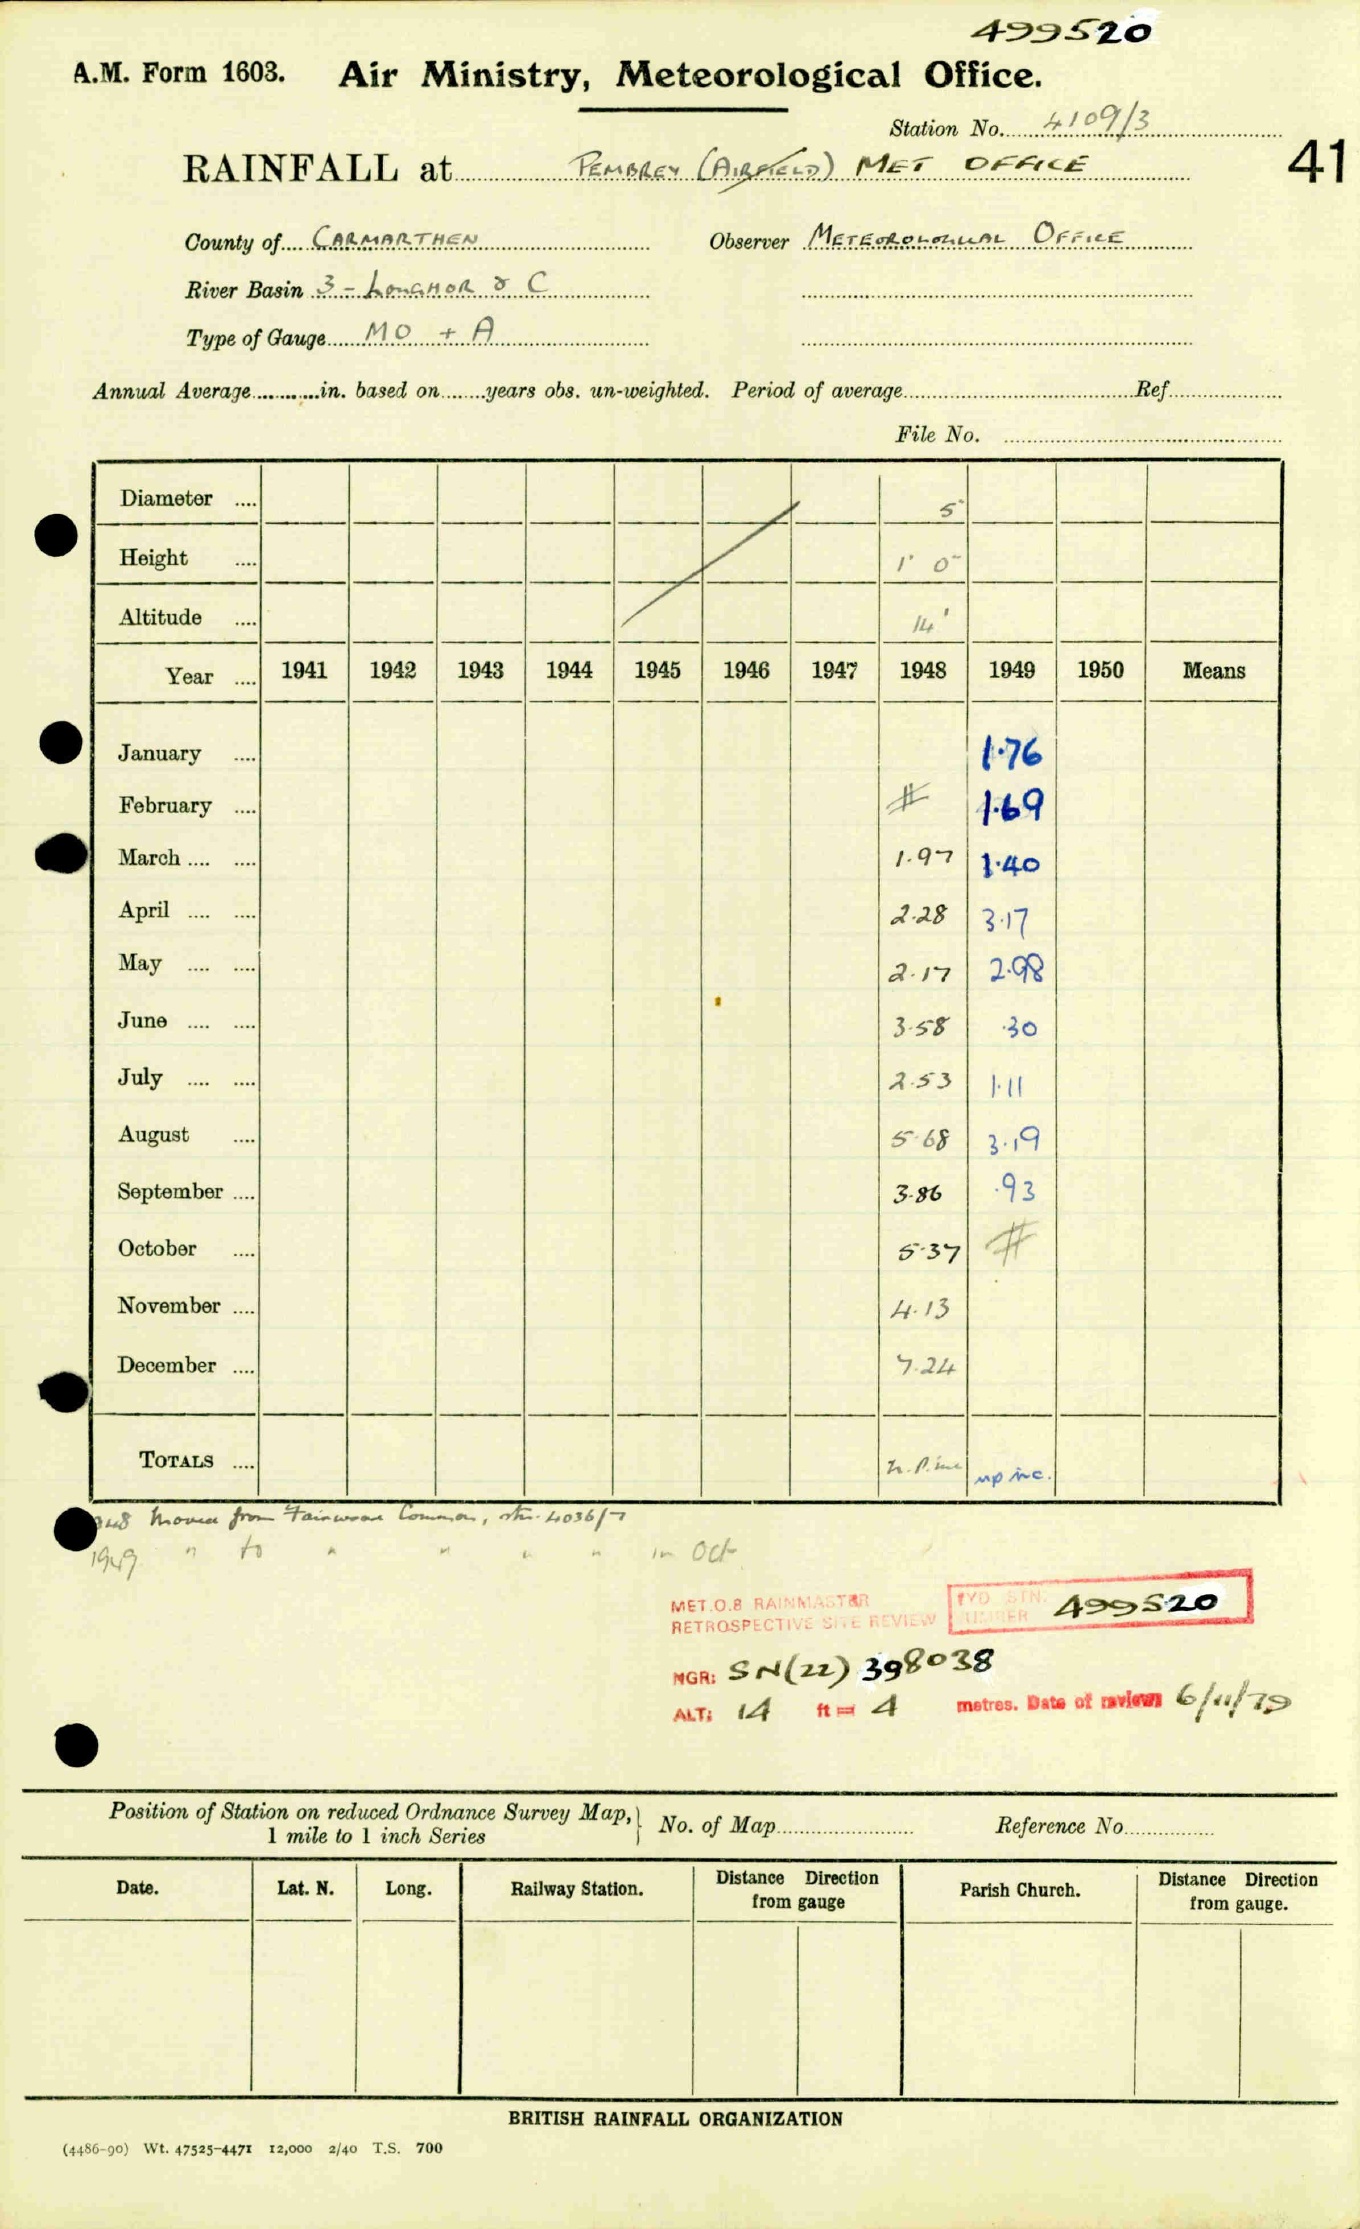 499520
A.M. Form 1603. Air Ministry, Meteorological Office.
Station No. 4109/3
41
RAINFALL at PEMBREY (AIRFIELD) MET OFFICE
County of CARMARTHEN Observer METEOROLOGICAL OFFICE
River Basin 3 - LOUGHOR & C
Type of Gauge MO + A
Annual Average in. based on years obs. un-weighted. Period of average Ref
File No.
Diameter 5
Height 1' 0"
Altitude 14'
Year 1941 1942 1943 1944 1945 1946 1947 1948 1949 1950 Means
January 1.76
February # 1.69
March 1.97 1.40
April 2.28 3.17
May 2.17 2.98
June 3.58 .30
July 2.53 1.11
August 5.68 3.19
September 3.86 .93
October 5.37 #
November 4.13
December 7.24
TOTALS n.p. inc np inc.
948 Moved from Fairwood Common, stn. 4036/7
1949 " to " " " " in Oct
MET.O.8 RAINMASTER
RETROSPECTIVE SITE REVIEW
STN. NUMBER 499520
NGR: SN(22) 398038
ALT: 14 ft = 4 metres. Date of review 6/11/79
Position of Station on reduced Ordnance Survey Map,
1 mile to 1 inch Series
No. of Map Reference No
Date. Lat. N. Long. Railway Station. Distance Direction from gauge Parish Church. Distance Direction from gauge.
BRITISH RAINFALL ORGANIZATION
(4486-90) Wt. 47525-4471 12,000 2/40 T.S. 700